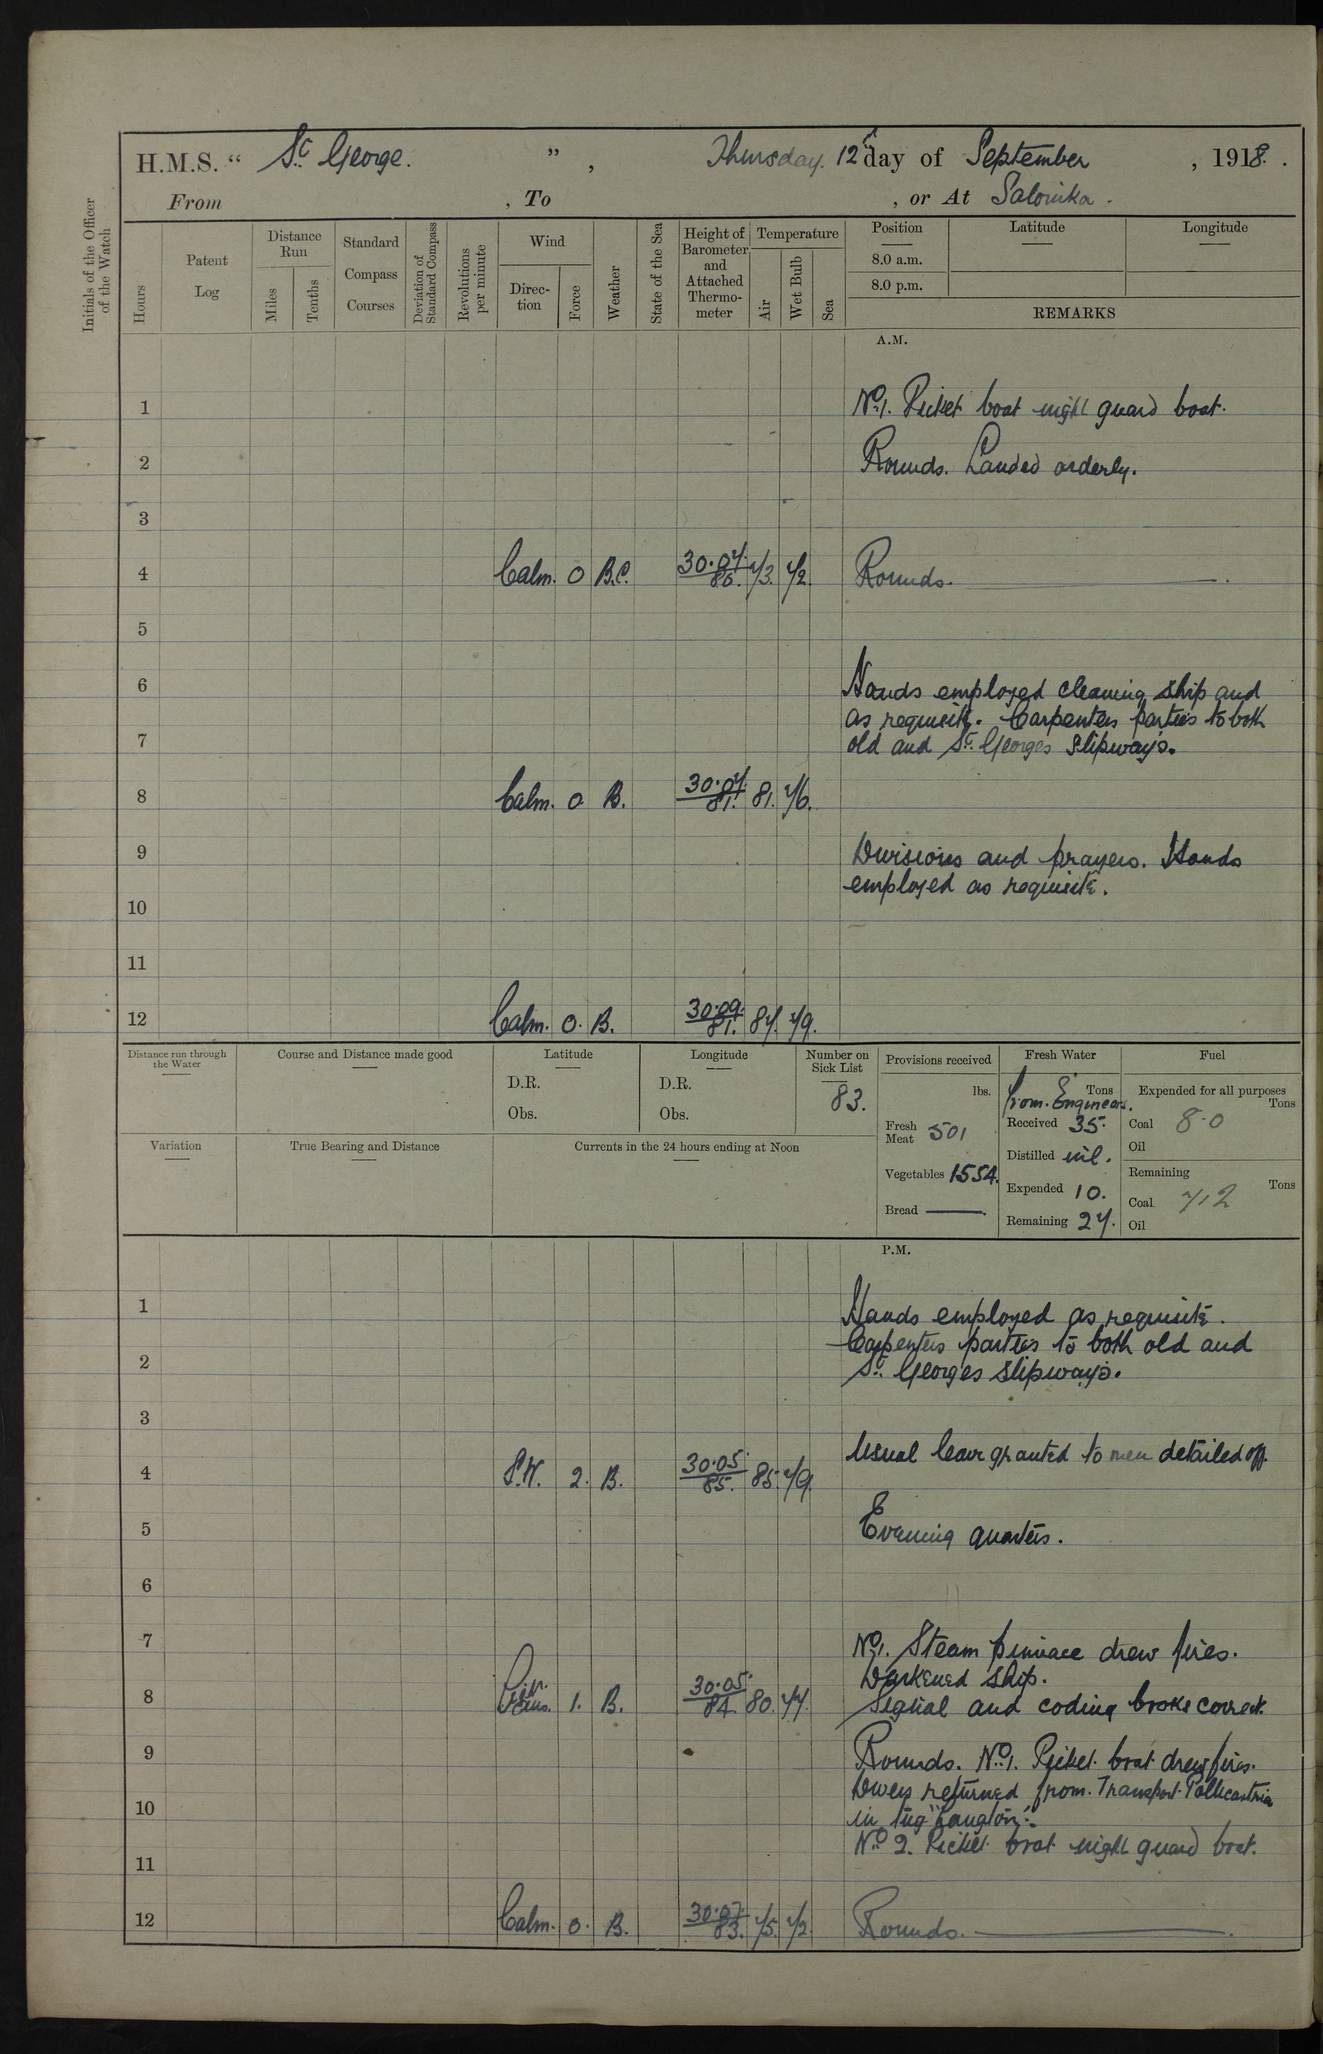 H.M.S. “ St George. ” , Thursday. 12th day of September , 1918. .
From , To , or At Salonika.
Initials of the Officer of the Watch
Hours
Patent Log
Distance Run
Miles
Tenths
Standard Compass Courses
Deviation of Standard Compass
Revolutions per minute
Wind
Direction
Force
Weather
State of the Sea
Height of Barometer and Attached Thermometer
Temperature
Air
Wet Bulb
Sea
Position
8.0 a.m.
8.0 p.m.
Latitude
Longitude
REMARKS
A.M.
1 No. 1. Picket boat night guard boat.
2 Rounds. Landed orderly.
3
4 Calm. 0 B.C. 30.07. 86. 73. 72. Rounds.
5
6 Hands employed cleaning ship and
as requisite. Carpenters parties to both
7 old and St. Georges slipways.
8 Calm. 0 B. 30.07. 81. 81. 76.
9 Divisions and prayers. Hands
employed as requisite.
10
11
12 Calm. 0. B. 30.09. 81. 87. 79.
Distance run through the Water
Course and Distance made good
Latitude
D.R.
Obs.
Longitude
D.R.
Obs.
Number on Sick List
83.
Provisions received
lbs.
Fresh Meat 501
Vegetables 1554.
Bread
Fresh Water
Tons
From. Engineers.
Received 35.
Distilled nil.
Expended 10.
Remaining 27.
Fuel
Expended for all purposes
Tons
Coal 8.0
Oil
Remaining
Tons
Coal 712
Oil
Variation
True Bearing and Distance
Currents in the 24 hours ending at Noon
P.M.
1 Hands employed as requisite.
2 Carpenters parties to both old and
St. Georges slipways.
3
Usual leave granted to men detailed off.
4 S.W. 2. B. 30.05. 85. 85. 79.
5 Evening quarters.
6
7 No. 1. Steam pinnace drew fires.
Darkened ship.
8 1. B. 30.05. 84. 80. 77. Signal and coding broke correct.
9 Rounds. No. 1. Picket boat drew fires.
returned from. Transport.
10 in tug
No. 2. Picket boat night guard boat.
11
12 Calm. 0. B. 30.07. 83. 75. 72. Rounds.